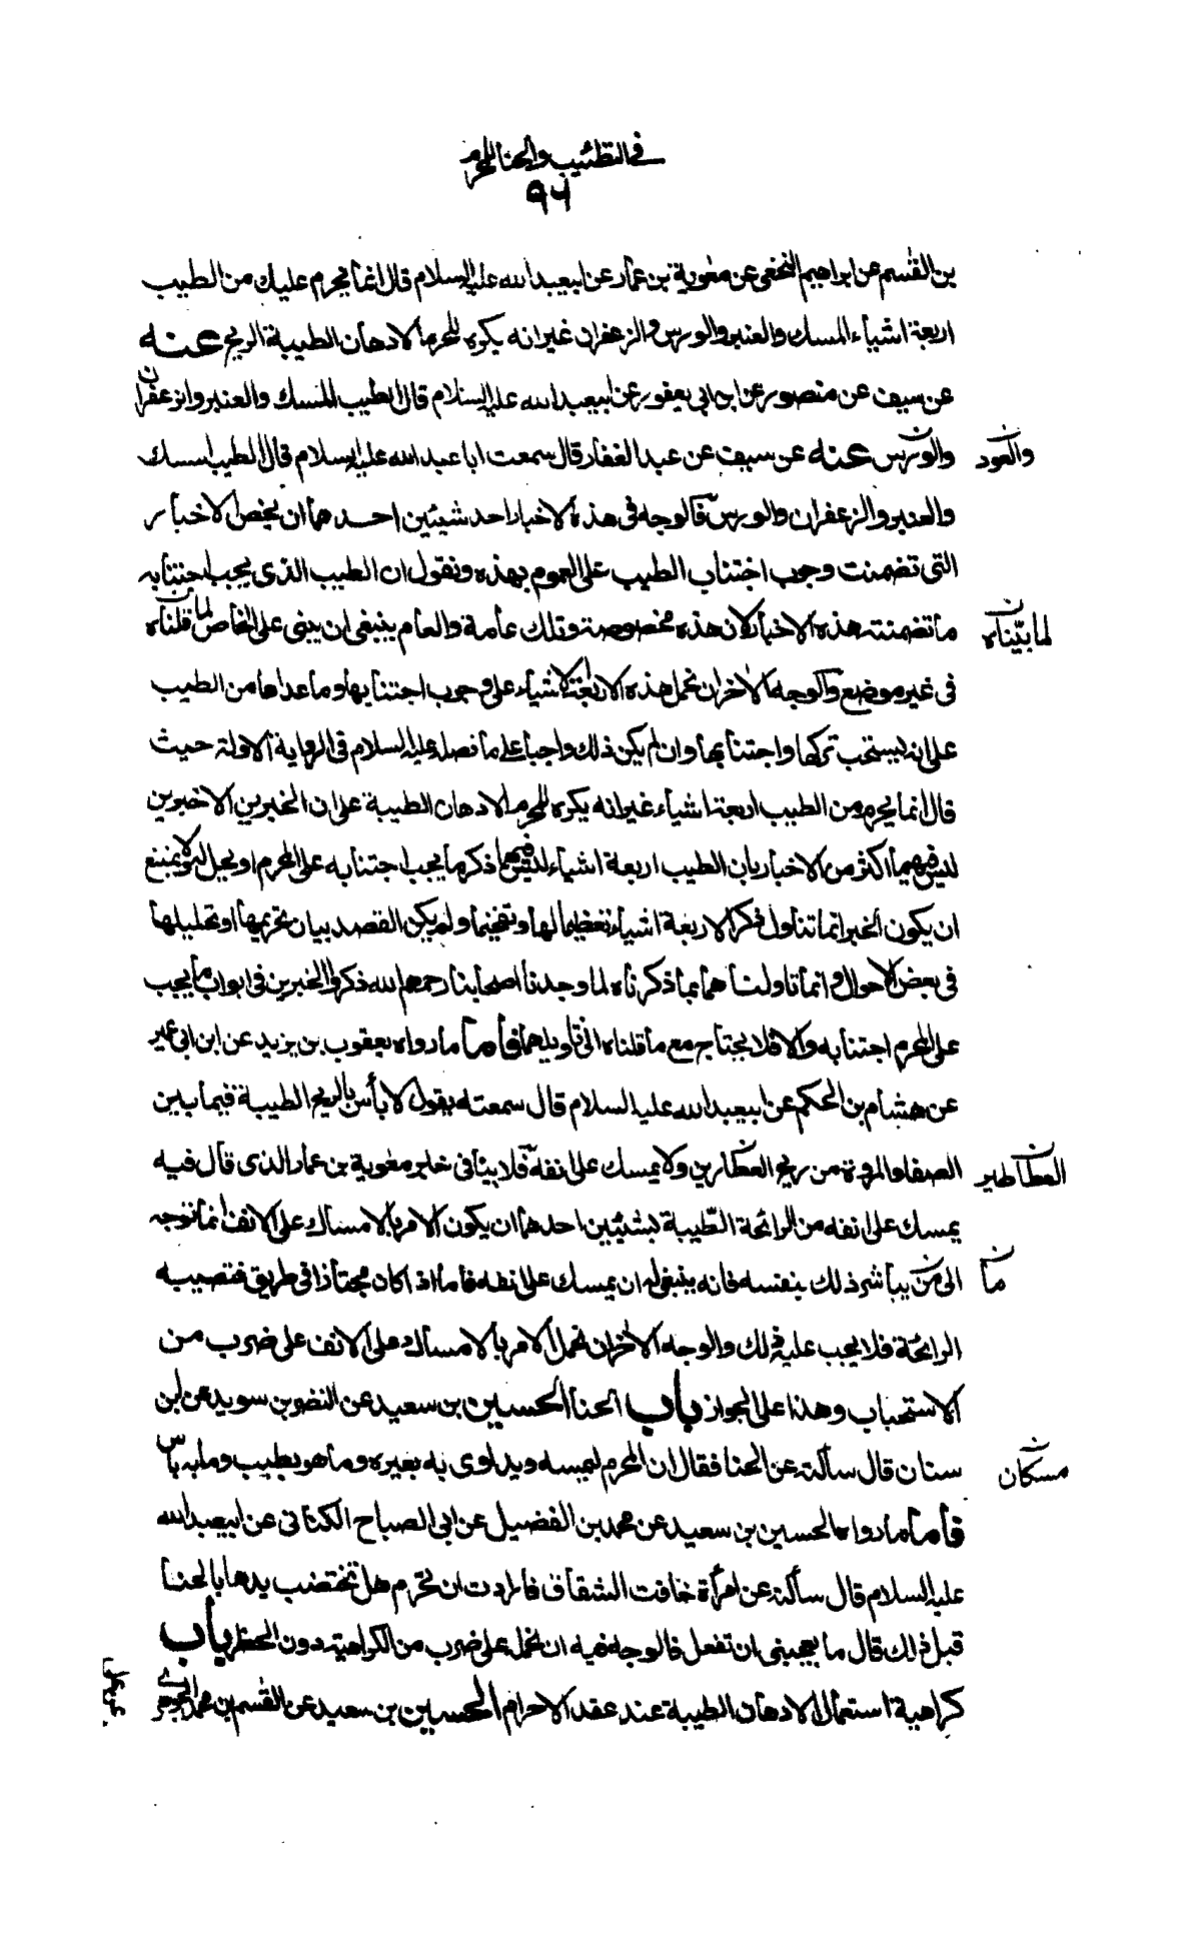 في التطئيب والحنا للمحرم
٩٦
بن القسم عن ابراهيم النخعي عن معوية بن عمار عن ابيعبد الله عليه السلام قال انما يحرم عليك من الطيب
اربعة اشياء المسك والعنبر والورس والزعفران غير انه يكره للمحرم الادهان الطيبة الريح عنه
عن سيف عن منصور عن ابن ابي يعفور عن ابيعبد الله عليه السلام قال الطيب المسك والعنبر والزعفران
والورس عنه عن سيف عن عبد الغفار قال سمعت ابا عبد الله عليه السلام قال الطيب المسك
والعود
والعنبر والزعفران والورس فالوجه في هذه الاخبار احد شيئين احدهما ان يخص الاخبار
التي تضمنت وجوب اجتناب الطيب على العموم بهذه ونقول ان الطيب الذي يجب اجتنابه
ما تضمنته هذه الاخبار لان هذه مخصوصة وتلك عامة والعام ينبغي ان يبنى على الخاص لما قلناه
لما بيّناه
في غير موضع والوجه الاخر ان نحمل هذه الاربعة الاشياء على وجوب اجتنابها وما عداها من الطيب
على انه يستحب تركها واجتنابها وان لم يكن ذلك واجبا على ما فصله عليه السلام في الرواية الاولة حيث
قال انما يحرم من الطيب اربعة اشياء غير انه يكره للمحرم الادهان الطيبة على ان الخبرين الاخيرين
ليس فيهما اكثر من الاخبار بان الطيب اربعة اشياء ليس فيهما ذكر ما يجب اجتنابه على المحرم او يحل له ولا يمتنع
ان يكون الخبر انما تناول ذكر الاربعة اشياء تعظيما لها وتفخيما ولم يكن القصد بيان تحريمها او تحليلها
في بعض الاحوال وانما تاولناهما بما ذكرناه لما وجدنا اصحابنا رحمهم الله ذكروا الخبرين في ابواب ما يجب
على المحرم اجتنابه والا فلا يحتاج مع ما قلناه الى تاويلهما فاما ما رواه يعقوب بن يزيد عن ابن ابي عمير
عن هشام بن الحكم عن ابيعبد الله عليه السلام قال سمعته يقول لا بأس بالريح الطيبة فيما بين
الصفا والمروة من ريح العطارين ولا يمسك على انفه فلا ينافي خبر معوية بن عمار الذي قال فيه
العطاطير
يمسك على انفه من الرائحة الطّيبة لشيئين احدهما ان يكون الامر بالامساك على الانف انما توجه
الى من يباشر ذلك بنفسه فانه ينبغي له ان يمسك على انفه فاما اذا كان مجتازا في طريق فتصيبه
ما
الرائحة فلا يجب عليه ذلك والوجه الاخر ان نحمل الامر بالامساك على الانف على ضرب من
الاستحباب وهذا على الجواز باب الحنا الحسين بن سعيد عن النضر بن سويد عن ابن
سنان قال سألته عن الحنا فقال ان المحرم ليمسه ويداوى به بعيره وما هو بطيب وما به باس
مسكان
فاما ما رواه الحسين بن سعيد عن محمد بن الفضيل عن ابي الصباح الكناني عن ابيعبد الله
عليه السلام قال سألته عن امرأة خافت الشقاق فارادت ان تحرم هل تختضب يدها بالحنا
قبل ذلك قال ما يعجبني ان تفعل فالوجه فيه ان نحمله على ضرب من الكراهية دون الحظر باب
كراهية استعمال الادهان الطيبة عند عقد الاحرام الحسين بن سعيد عن القسم بن محمد الجوهري
عن علي